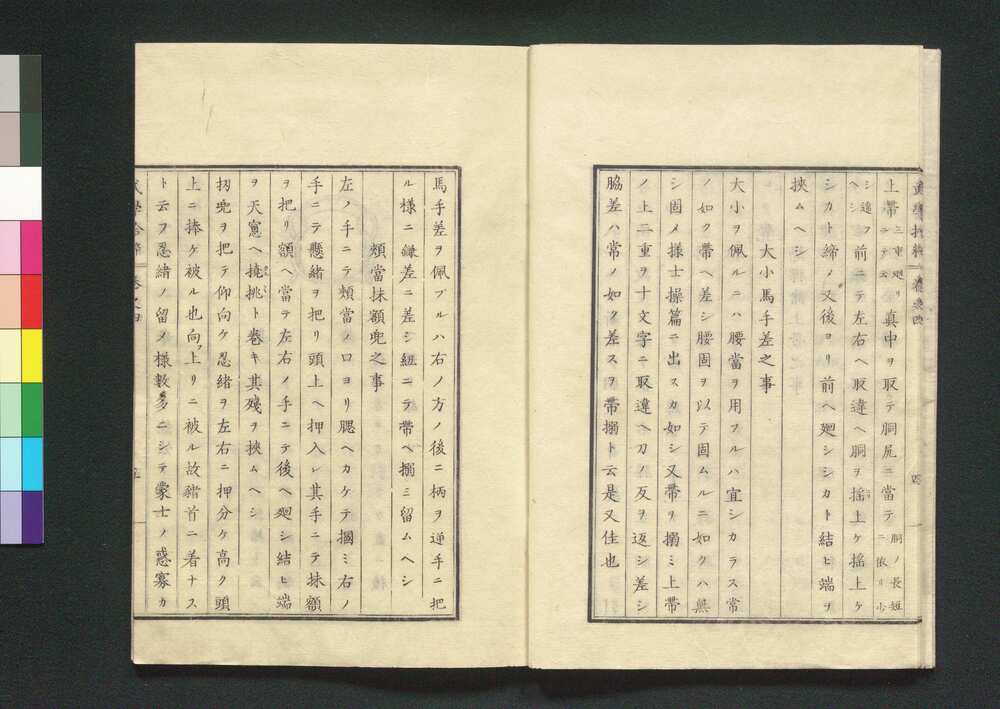 上帶 三重廻リ 真中ヲ取テ胴尻ニ當テ 胴ノ長短
ニ依リ少
シ違フ
ヘシ 前ニテ左右ヘ取違ヘ胴ヲ搖上ケ搖上ケ
シカト締メ又後ヨリ前ヘ廻シシカト結ヒ端ヲ
挾ムヘシ
大小馬手差之事
大小ヲ佩ルニハ腰當ヲ用フルハ宜シカラス常
ノ如ク帶ヘ差シ腰固ヲ以テ固ムルニ如クハ無
シ固メ様士操篇ニ出スカ如シ又帶ヲ搦ミ上帶
ノ上二重ヲ十文字ニ取違ヘ刀ノ反ヲ返シ差シ
脇差ハ常ノ如ク差スヲ帶搦ト云是又佳也
馬手差ヲ佩フルハ右ノ方ノ後ニ柄ヲ逆手ニ把
ル様ニ鎌差ニ差シ紐ニテ帶ヘ搦ミ留ムヘシ
頬當抹額兜之事
左ノ手ニテ頬當ノ口ヨリ腮ヘカケテ摑ミ右ノ
手ニテ懸緒ヲ把リ頭上ヘ押入レ其手ニテ抹額
ヲ把リ額ヘ當テ左右ノ手ニテ後ヘ廻シ結ヒ端
ヲ天窓ヘ撓挑ト巻キ其殘ヲ挾ムヘシ
扨兜ヲ把テ仰向ケ忍緒ヲ左右ニ押分ケ高ク頭
上ニ捧ケ被ル也向フ上リニ被ル故猪首ニ着ナス
ト云フ忍緒ノ留メ様數多ニシテ蒙士ノ惑寡カ